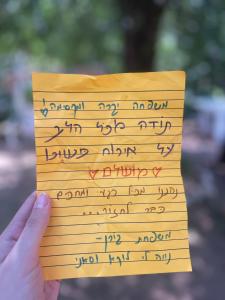 משפחה יקרה ומקסימה!
תודה מכל הלב
על אירוח פשוט
מושלם
נהננו מכל רגע ומחכים
כבר לחזור...
משפחת